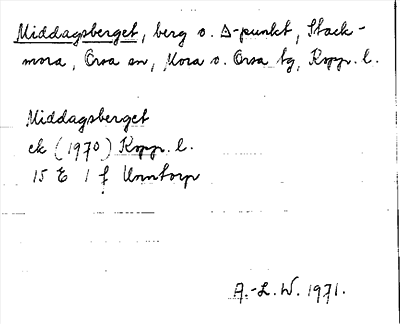 Middagsberget, berg o. Δ-punkt, Stack-
mora, Orsa sn, Mora o. Orsa tg, Kopp. l.
Middagsberget
ek (1970) Kopp. l.
15 E 1 f Unntorp
A.-L. W. 1971.